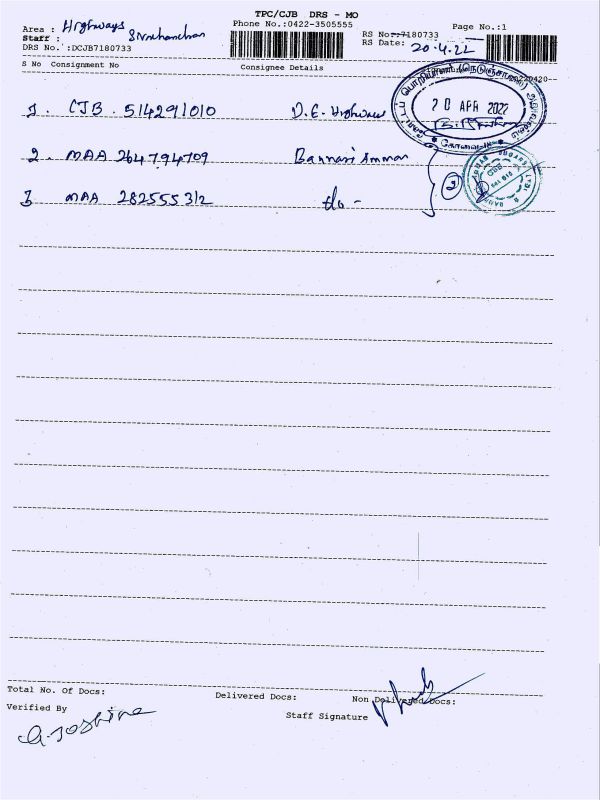 TPC/CJB DRS - MO
Phone No.:0422-3505555
Page No.:1
Area : Highways
Staff :
DRS No. :DCJB7180733
RS No:7180733
RS Date: 20.4.22
S No Consignment No Consignee Details
1. CJB. 514291010 D.E. Highways
20 APR 2022
கோவை
2. MAA 264794709 Bannari Amman
3 MAA 282555312 do -
2
Total No. Of Docs: Delivered Docs: Non Delivered Docs:
Verified By Staff Signature